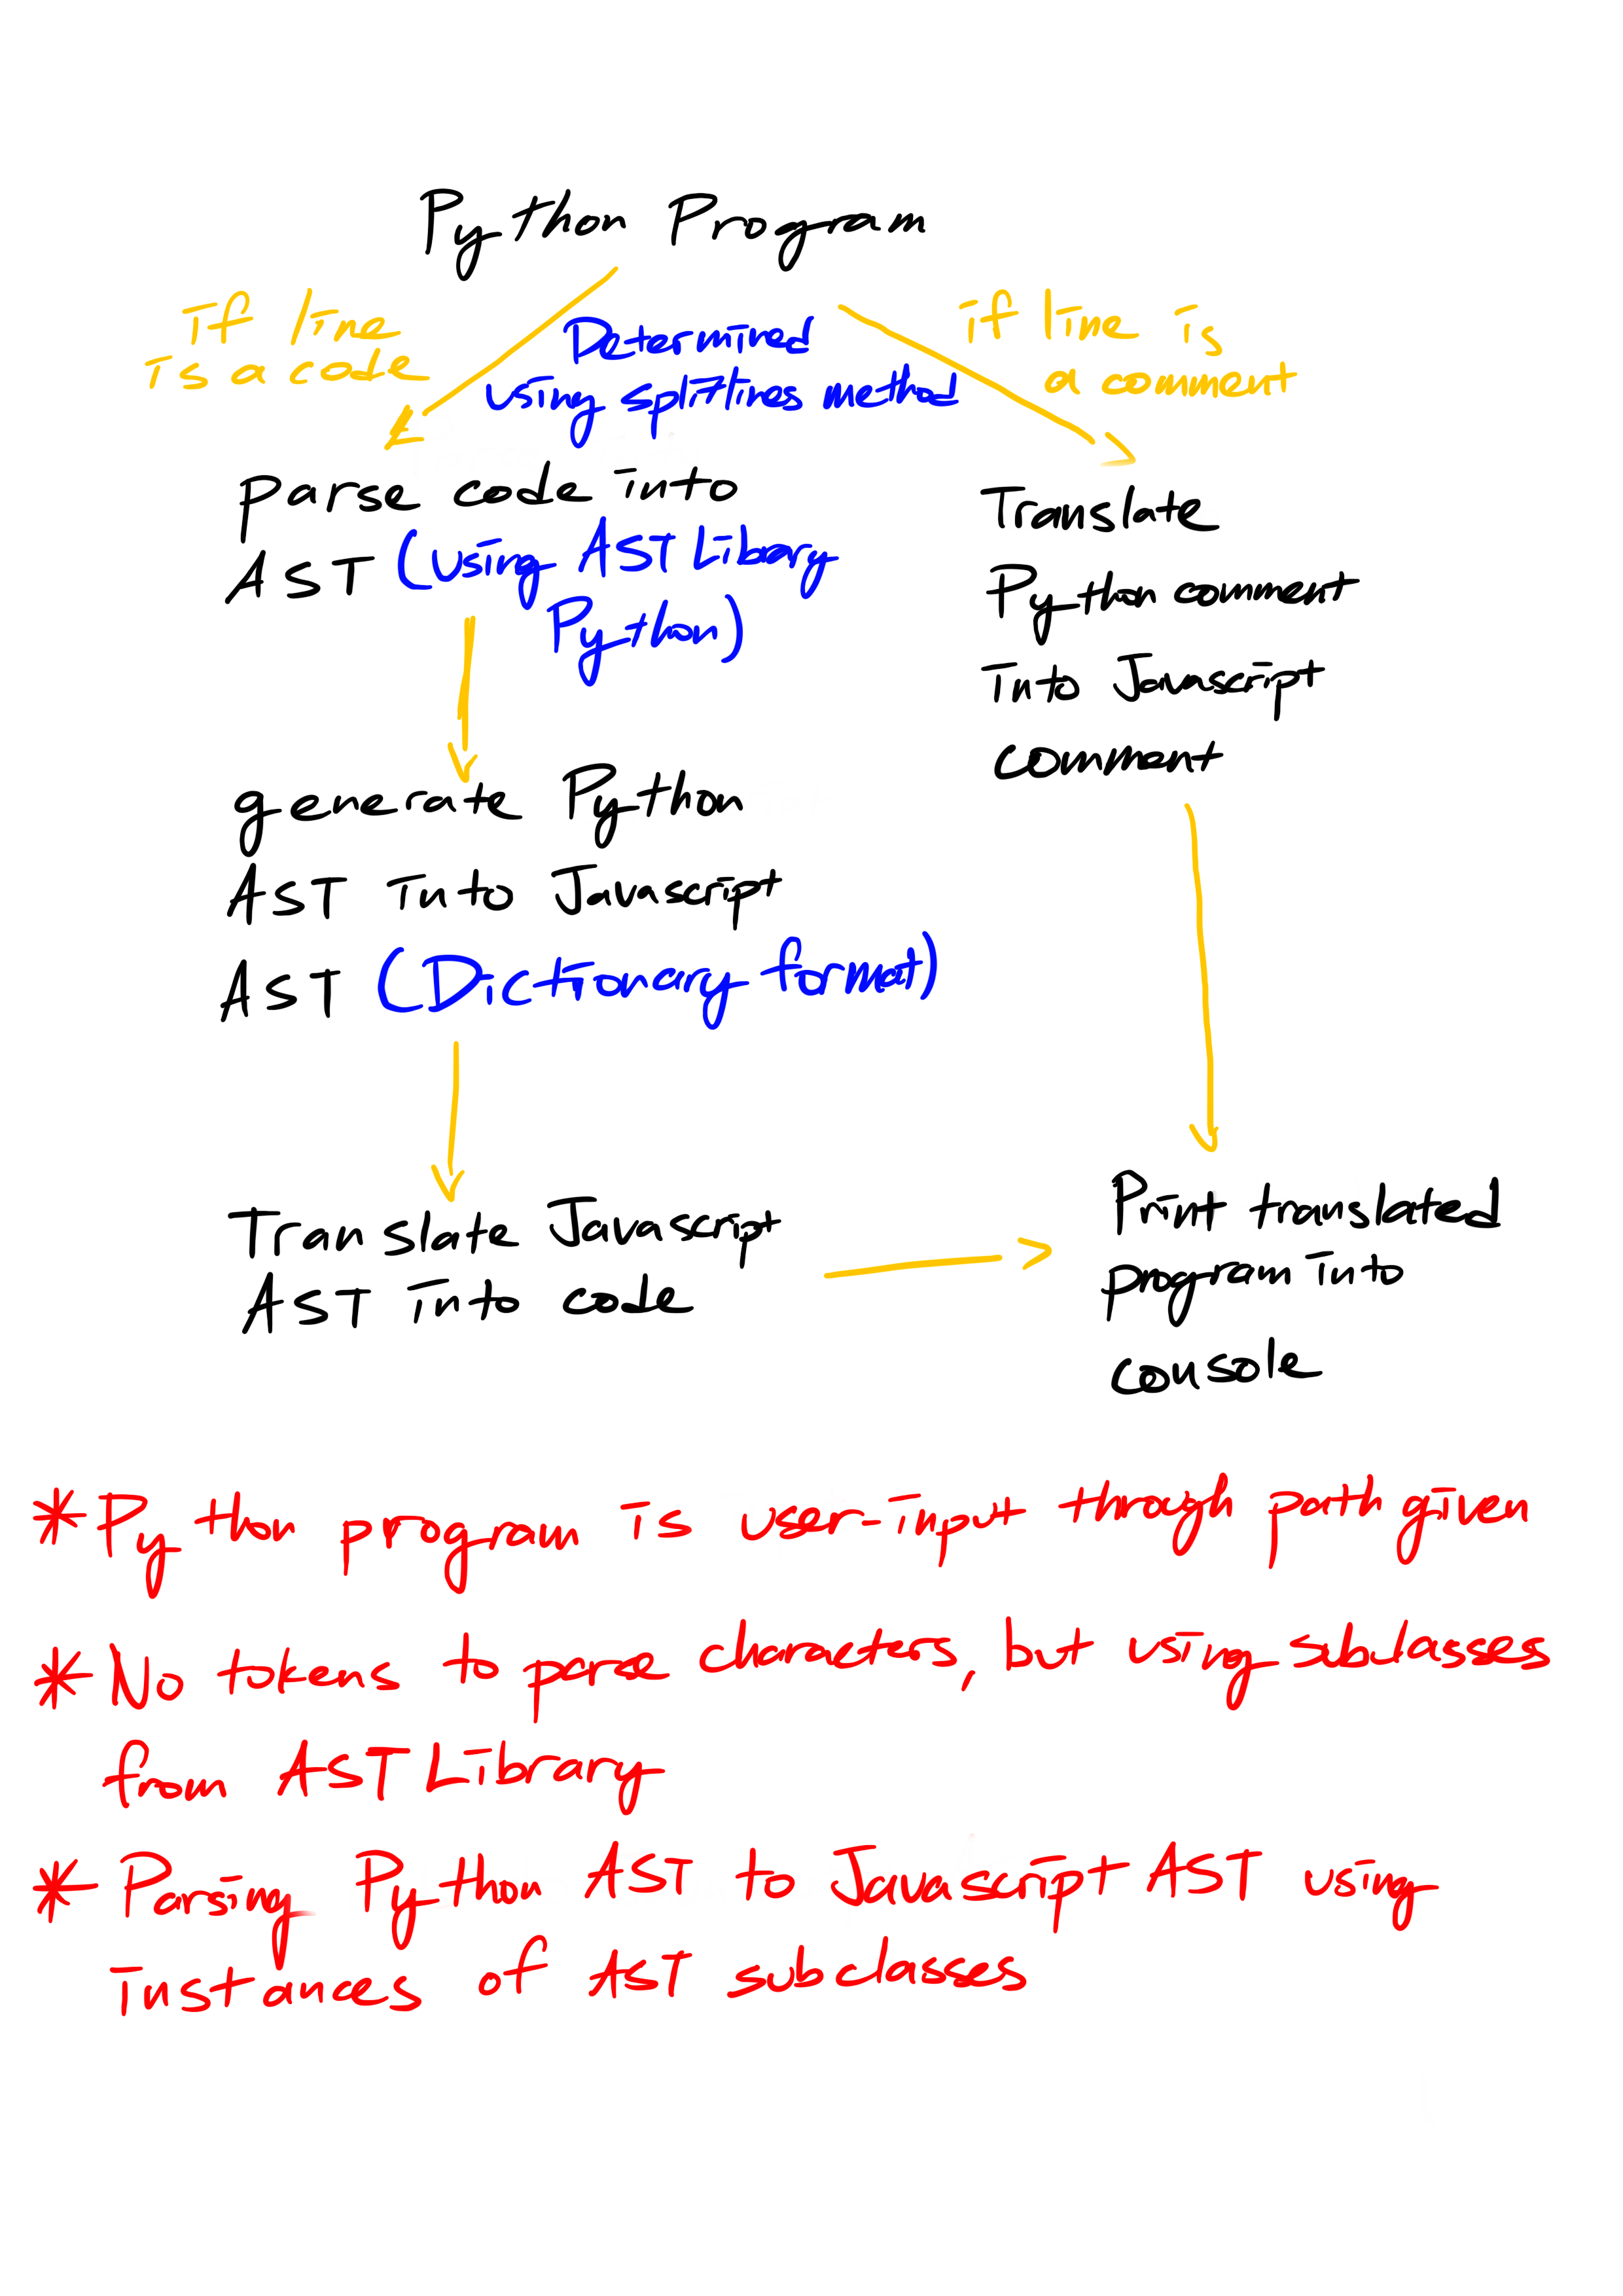 Python Program
if line
is a code
Determined
using splitlines method
if line is
a comment
Parse code into
AST (using AST Library
Python)
generate Python
AST into Javascript
AST (Dictionary format)
Translate Javascript
AST into code
Translate
Python comment
into Javascript
comment
Print translated
program into
console
* Python program is user-input through path given
* No tokens to parse characters, but using subclasses
from AST Library
* Parsing Python AST to Javascript AST using
instances of AST subclasses